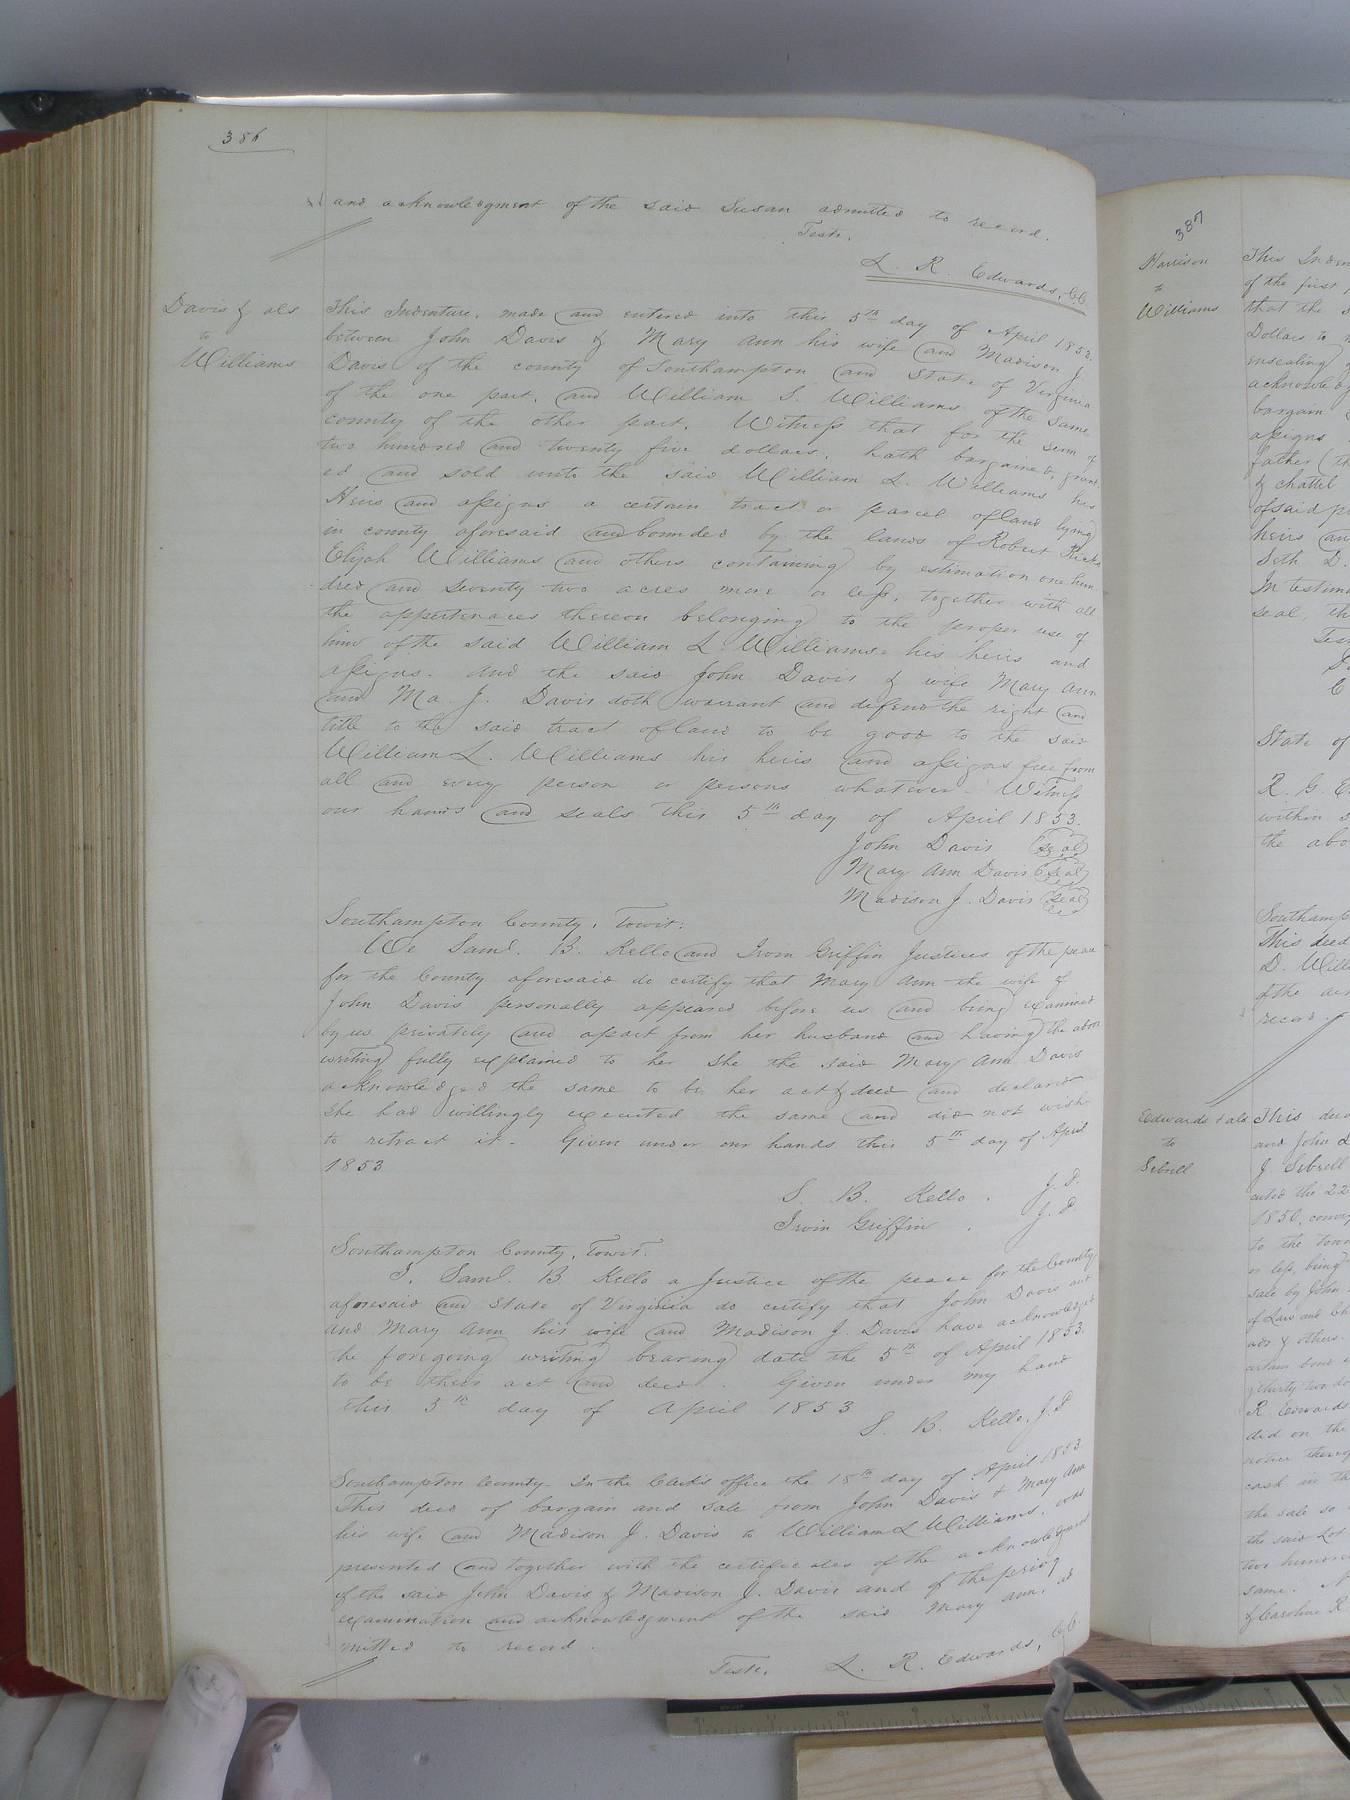 386
and acknowledgment of the said Susan admitted to record.
Teste.
L. R. Edwards, C.C.
Davis & als
to
Williams
This Indenture, made and entered into this 5th day of April 1853.
between John Davis & Mary Ann his wife and Madison J.
Davis of the county of Southampton and State of Virginia
of the one part, and William S. Williams of the same
county of the other part. Witness that for the sum of
two hundred and twenty five dollars, hath bargained, grant-
ed and sold unto the said William L. Williams his
Heirs and assigns a certain tract or parcel of land lying
in county aforesaid and bounded by the lands of Robert Ricks
Elijah Williams and others containing by estimation one hun-
dred and seventy two acres more or less, together with all
the appertenaces thereon belonging to the proper use of
him of the said William L. Williams his heirs and
assigns. And the said John Davis & wife Mary Ann
and Ma. J. Davis doth warrant and defend the right and
title to the said tract of land to be good to the said
William L. Williams his heirs and assigns free from
all and every person or persons whatever. Witness
our hands and seals this 5th day of April 1853.
John Davis seal
Mary Ann Davis seal
Madison J. Davis seal
Southampton County, Towit:
We Saml. B. Kello and Irvin Griffin Justices of the peace
for the County aforesaid do certify that Mary Ann the wife of
John Davis personally appeared before us and being examined
by us privately and apart from her husband and having the above
writing fully explained to her she the said Mary Ann Davis
acknowledged the same to be her act & deed and declared
she had willingly executed the same and did not wish
to retract it. Given under our hands this 5th day of April
1853
S. B. Kello. J.P.
Irvin Griffin. J.P.
Southampton County, Towit.
I, Saml. B Kello a Justice of the peace for the County
aforesaid and State of Virginia do certify that John Davis and
and Mary Ann his wife and Madison J. Davis have acknowledged
the foregoing writing bearing date the 5th of April 1853.
to be their act and deed. Given under my hand
this 5th day of April 1853
S. B. Kello, J.P
Southampton County. In the Clerk's office the 18th day of April 1853
This deed of bargain and sale from John Davis & Mary Ann
his wife and Madison J. Davis to William L Williams, was
presented and together with the certificates of the acknowledgment
of the said John Davis & Madison J. Davis and of the privy
examination and acknowledgment of the said Mary Ann, ad
mitted to record.
Teste. L. R. Edwards, C.C.
387
Harrison
to
Williams
This Inden
of the first p
that the s
Dollars to
ensealing
acknowledg
bargain
assigns
father (th
& chattel
of said p
heirs (an
Seth D.
In testim
seal, th
Tes
State of
R. G. E
within
the abo
Southamp
This deed
D. Willi
of the ac
record.
Edwards & als
to
Sebrell
This dee
and John
J. Sebrell
cuted the 22
1850, convey
to the town
or less, being
sale by John
of Law and Ch
& others.
certain bond
& thirty two do
R. Edwards
did on the
notice thereof
cash in th
the sale so
the said Lot
two hundred
same.
& Caroline R